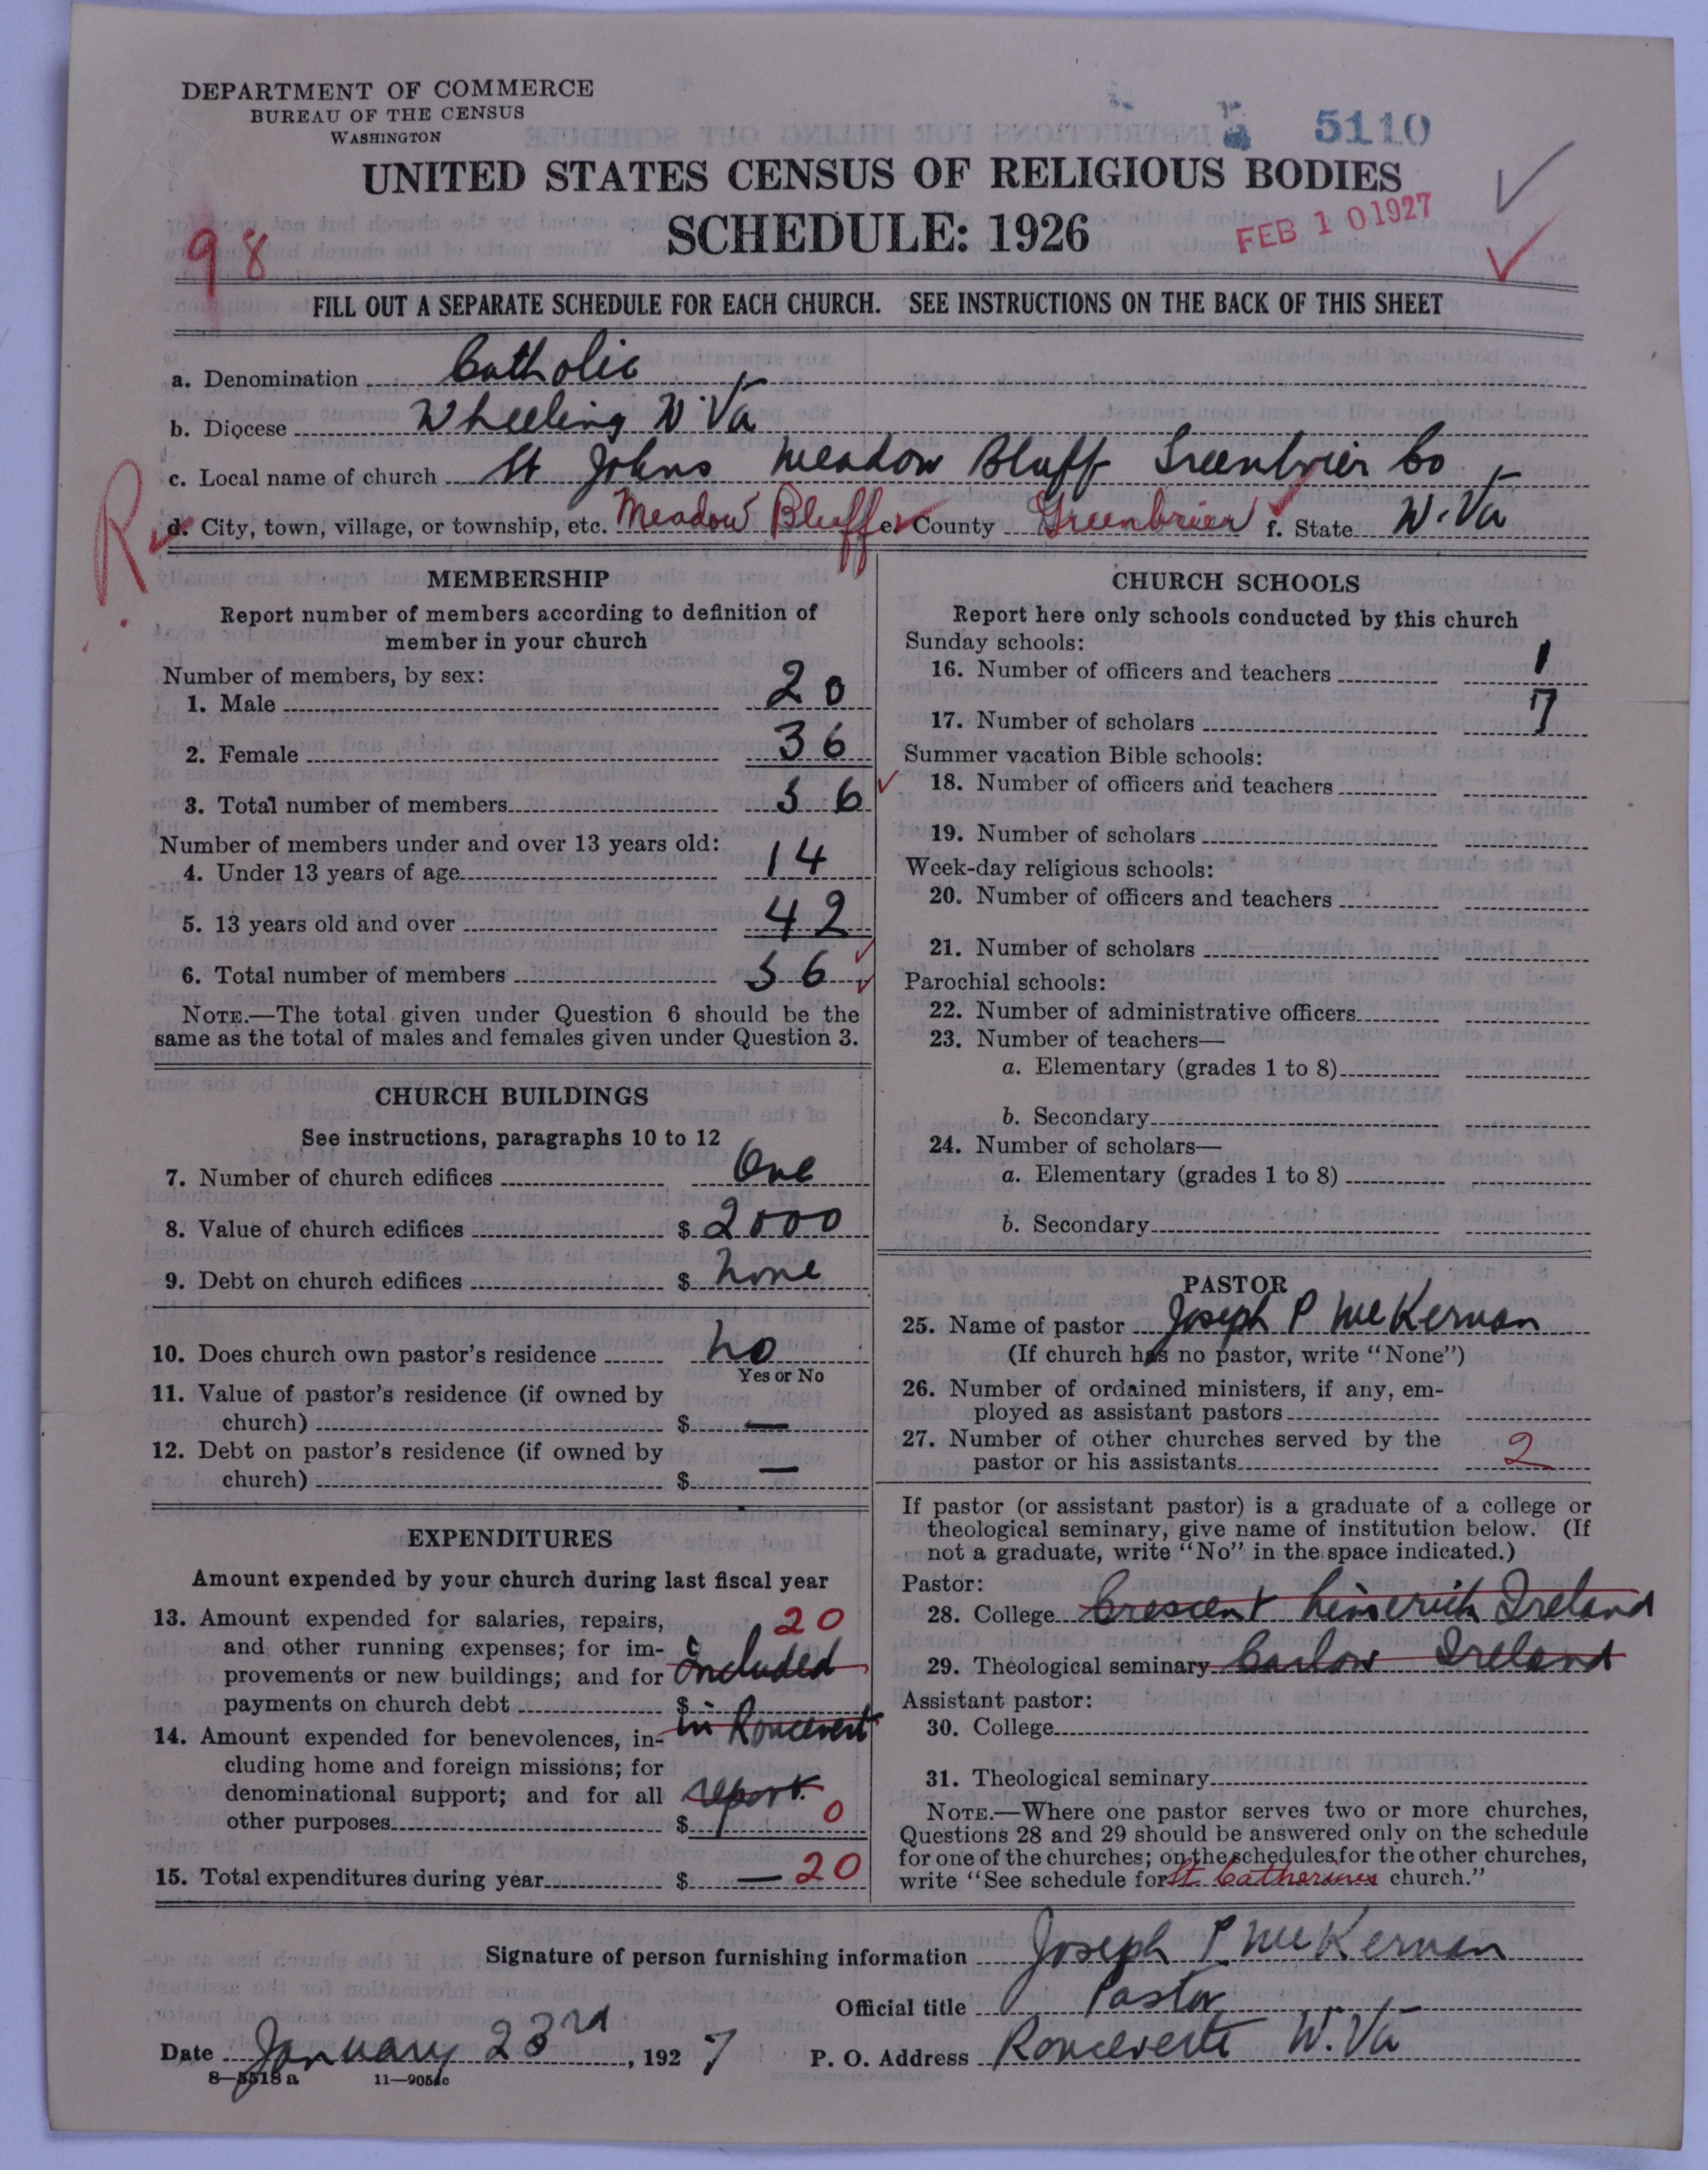 DEPARTMENT OF COMMERCE
BUREAU OF THE CENSUS
WASHINGTON
5110
UNITED STATES CENSUS OF RELIGIOUS BODIES
SCHEDULE: 1926
FEB 10 1927
98
FILL OUT A SEPARATE SCHEDULE FOR EACH CHURCH. SEE INSTRUCTIONS ON THE BACK OF THIS SHEET
a. Denomination Catholic
b. Diocese Wheeling W. Va
c. Local name of church St Johns Meadow Bluff Greenbrier Co
R
d. City, town, village, or township, etc. Meadow Bluff e. County Greenbrier f. State W. Va
MEMBERSHIP
Report number of members according to definition of
member in your church
Number of members, by sex:
1. Male 20
2. Female 36
3. Total number of members 56
Number of members under and over 13 years old:
4. Under 13 years of age 14
5. 13 years old and over 42
6. Total number of members 56
NOTE.—The total given under Question 6 should be the
same as the total of males and females given under Question 3.
CHURCH BUILDINGS
See instructions, paragraphs 10 to 12
7. Number of church edifices One
8. Value of church edifices $ 2000
9. Debt on church edifices $ None
10. Does church own pastor's residence No
Yes or No
11. Value of pastor's residence (if owned by
church) $ —
12. Debt on pastor's residence (if owned by
church) $ —
EXPENDITURES
Amount expended by your church during last fiscal year
13. Amount expended for salaries, repairs, 20
and other running expenses; for im-
provements or new buildings; and for included
payments on church debt $
14. Amount expended for benevolences, in- in Roncevert
cluding home and foreign missions; for
denominational support; and for all report.
other purposes $ 0
15. Total expenditures during year $ — 20
CHURCH SCHOOLS
Report here only schools conducted by this church
Sunday schools:
16. Number of officers and teachers 1
17. Number of scholars 7
Summer vacation Bible schools:
18. Number of officers and teachers
19. Number of scholars
Week-day religious schools:
20. Number of officers and teachers
21. Number of scholars
Parochial schools:
22. Number of administrative officers
23. Number of teachers—
a. Elementary (grades 1 to 8)
b. Secondary
24. Number of scholars—
a. Elementary (grades 1 to 8)
b. Secondary
PASTOR
25. Name of pastor Joseph P McKernan
(If church has no pastor, write "None")
26. Number of ordained ministers, if any, em-
ployed as assistant pastors
27. Number of other churches served by the
pastor or his assistants 2
If pastor (or assistant pastor) is a graduate of a college or
theological seminary, give name of institution below. (If
not a graduate, write "No" in the space indicated.)
Pastor:
28. College Crescent Limerick Ireland
29. Theological seminary Carlow Ireland
Assistant pastor:
30. College
31. Theological seminary
NOTE.—Where one pastor serves two or more churches,
Questions 28 and 29 should be answered only on the schedule
for one of the churches; on the schedules for the other churches,
write "See schedule for St. Catherines church."
Signature of person furnishing information Joseph P McKernan
Official title Pastor
Date January 23rd, 1927 P. O. Address Ronceverte W. Va
8—5518 a 11—9051c